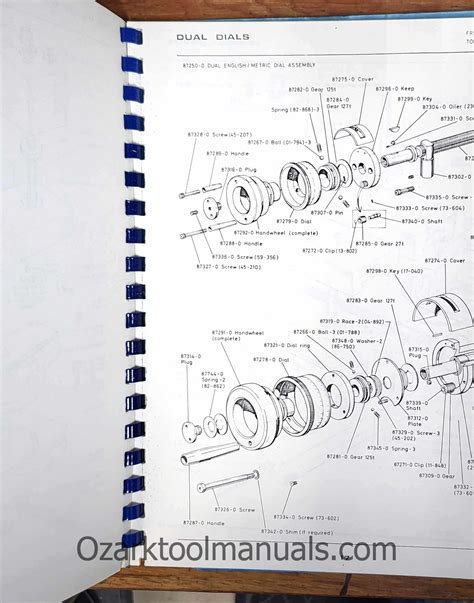 DUAL DIALS
FR
TO
87250-0 DUAL ENGLISH / METRIC DIAL ASSEMBLY
87275-0 Cover
87282-0 Gear 125t
87296-0 Keep
87284-0
Gear 127t
87299-0 Key
Spring (82-868)-3
87304-0 Oiler (23-
87328-0 Screw (45-207)
87331-0 S
87267-0 Ball (01-784)-3
87289-0 Handle
87316-0 Plug
87302-0
87335-0 Screw-
87307-0 Pin
87333-0 Screw (73-604)
87279-0 Dial
87340-0 Shaft
87292-0 Handwheel (complete)
87288-0 Handle
87285-0 Gear 27t
87272-0 Clip (13-802)
87336-0 Screw (59-356)
87327-0 Screw (45-210)
87274-0 Cover
87298-0 Key (17-040)
87283-0 Gear 127t
87319-0 Race-2 (04-892)
87291-0 Handwheel
(complete)
87266-0 Ball-3 (01-788)
87348-0 Washer-2
(86-750)
87315-0
Plug
87321-0 Dial ring
87314-0
Plug
87278-0 Dial
87744-0
Spring-2
(82-862)
87339-0
Shaft
87312-0
Plate
87329-0 Screw-3
(45-202)
87345-0 Spring-3
87281-0 Gear 125t
87271-0 Clip (11-848)
87309-0
87332-0
87326-0 Screw
87334-0 Screw (73-602)
87287-0 Handle
87342-0 Shim (if required)
Ozarktoolmanuals.com